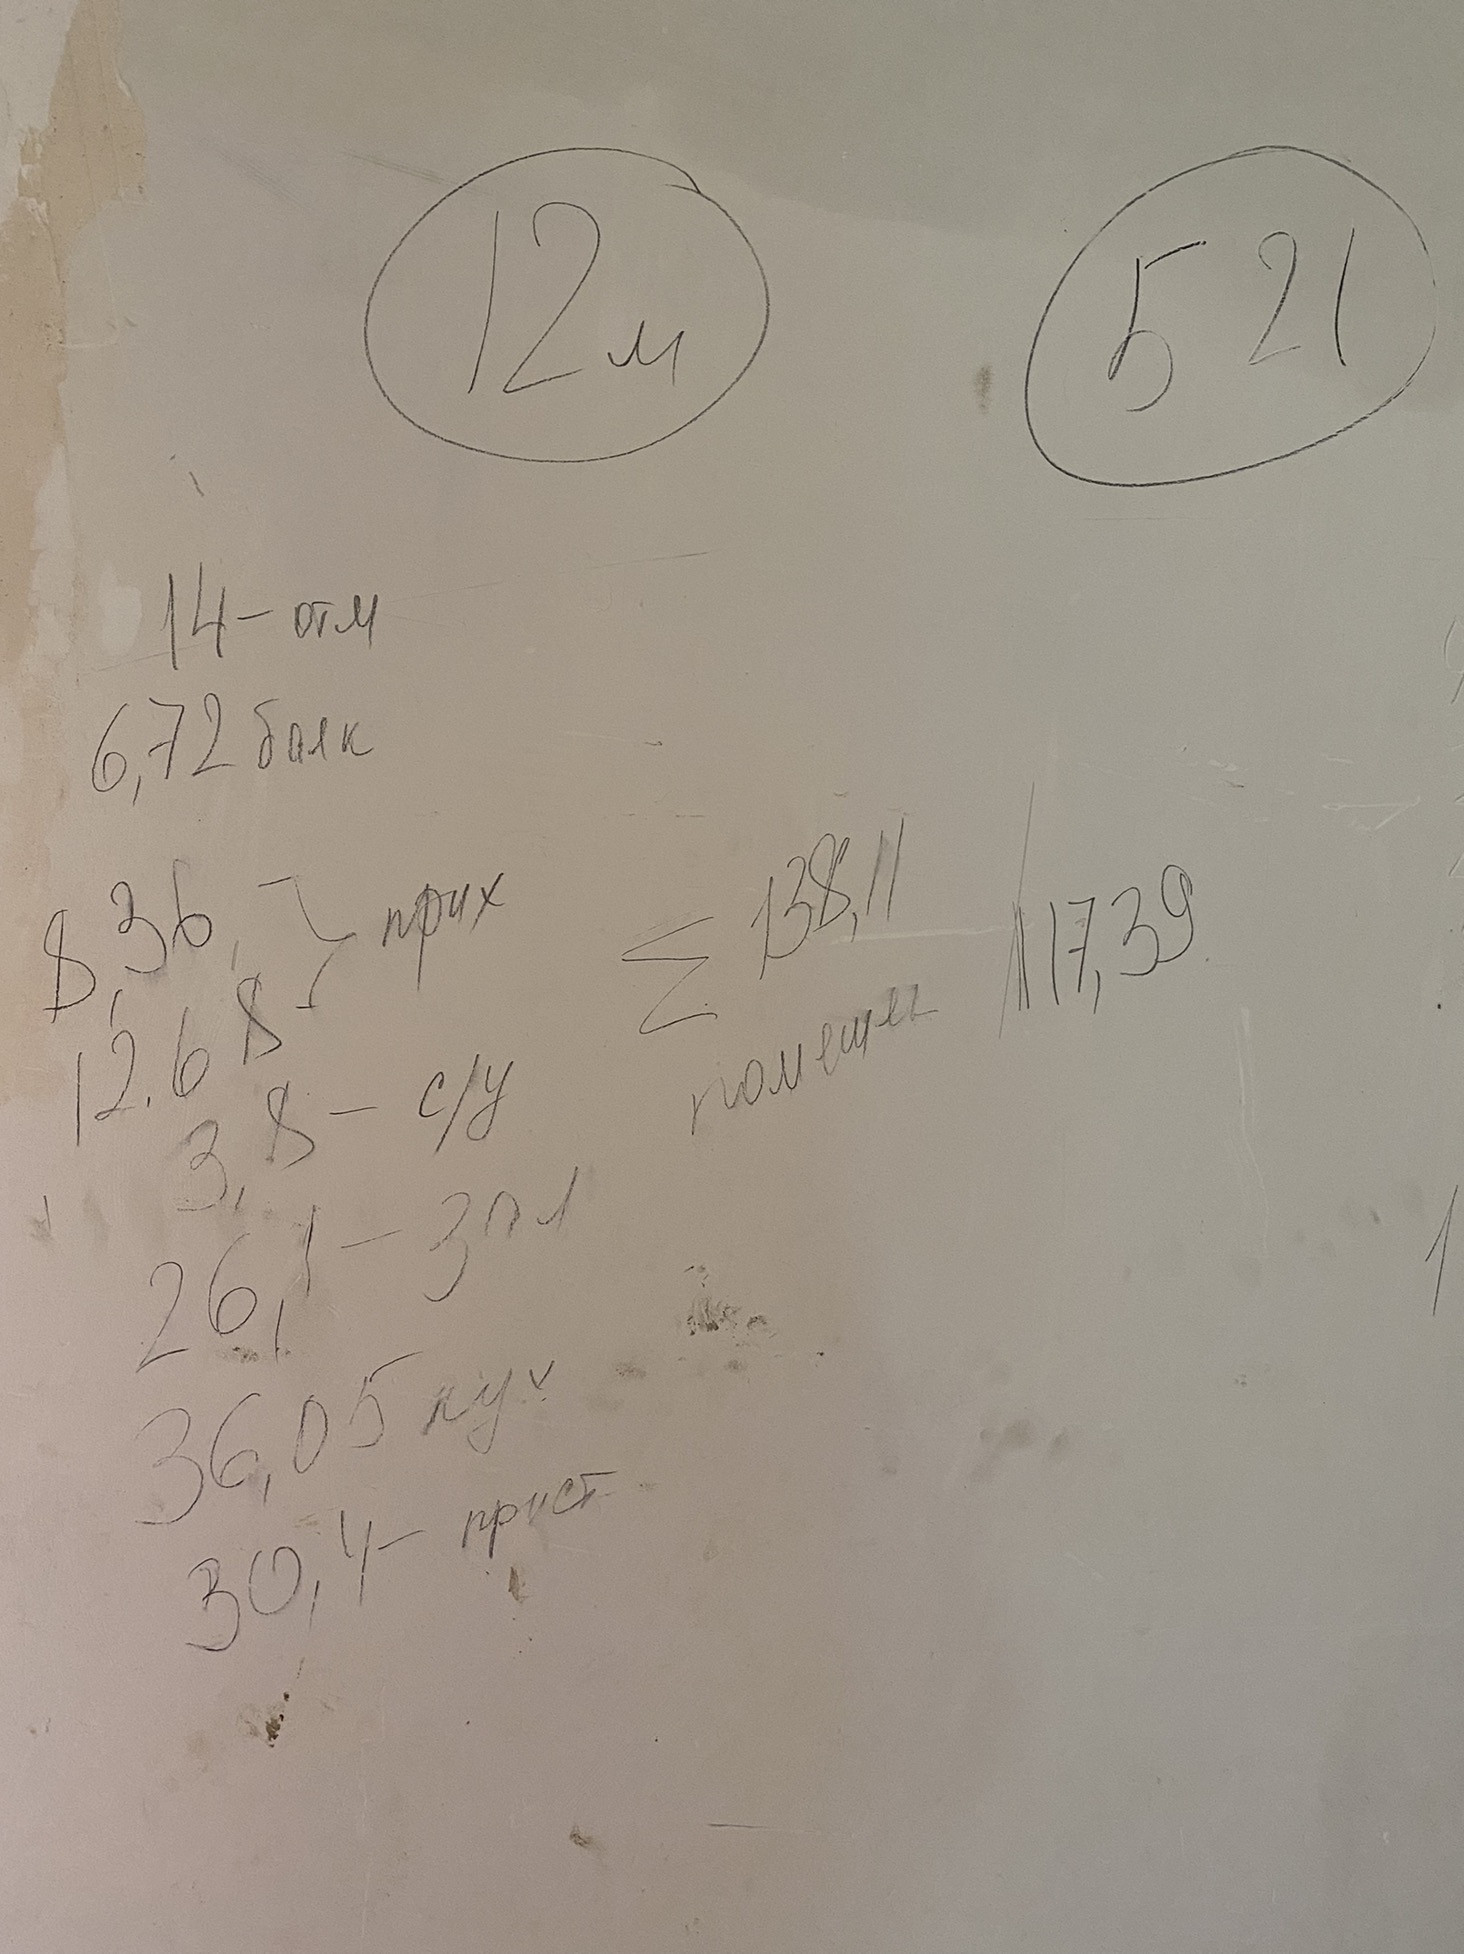 12м
521
14 - отм
6,72 балк
8,36
12.68 } прих
3,8 - с/у
26,1 - зал
36,05 кух
30,4 - прист
Σ 138,11
117,39